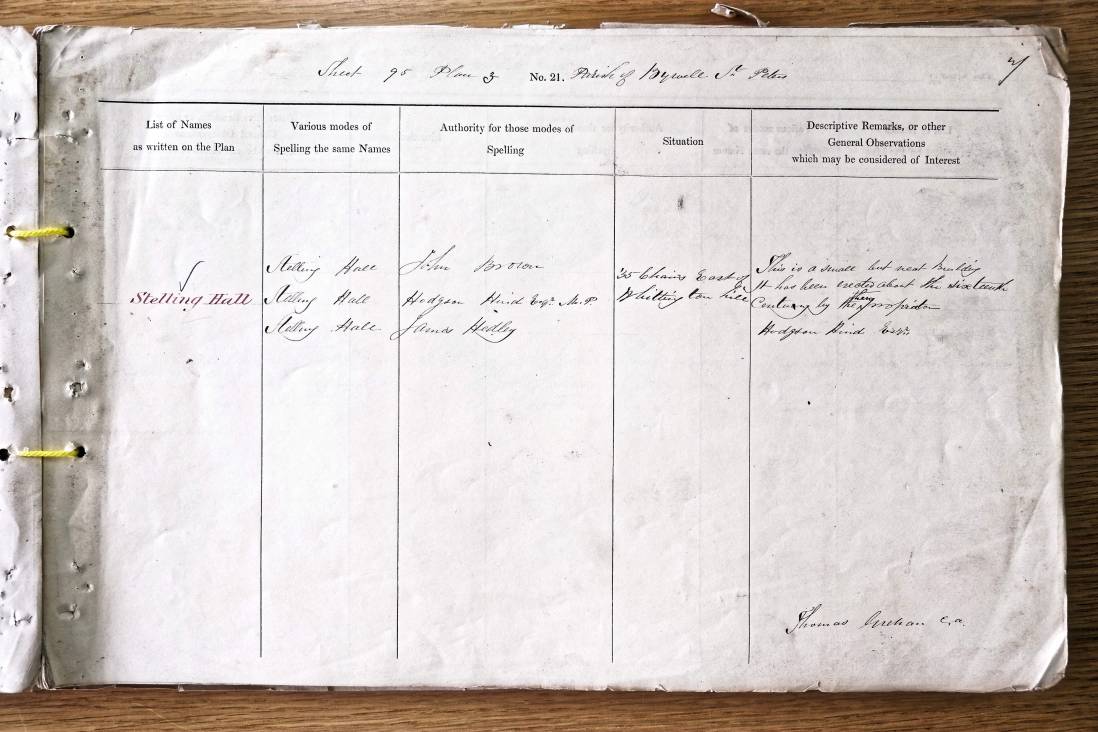 Sheet 95 Plan 3 No. 21. Parish of Bywell St Peters
List of Names
as written on the Plan
Various modes of
Spelling the same Names
Authority for those modes of
Spelling
Situation
Descriptive Remarks, or other
General Observations
which may be considered of Interest
Stelling Hall
Stelling Hall
Stelling Hall
Stelling Hall
John Brown
Hodgson Hind Esqr. M.P.
James Hedley
35 Chains East of
Whittington hill
This is a small but neat Building
It has been erected about the sixteenth
Century by the proprietor
Hodgson Hind Esqr.
Thomas c.a.